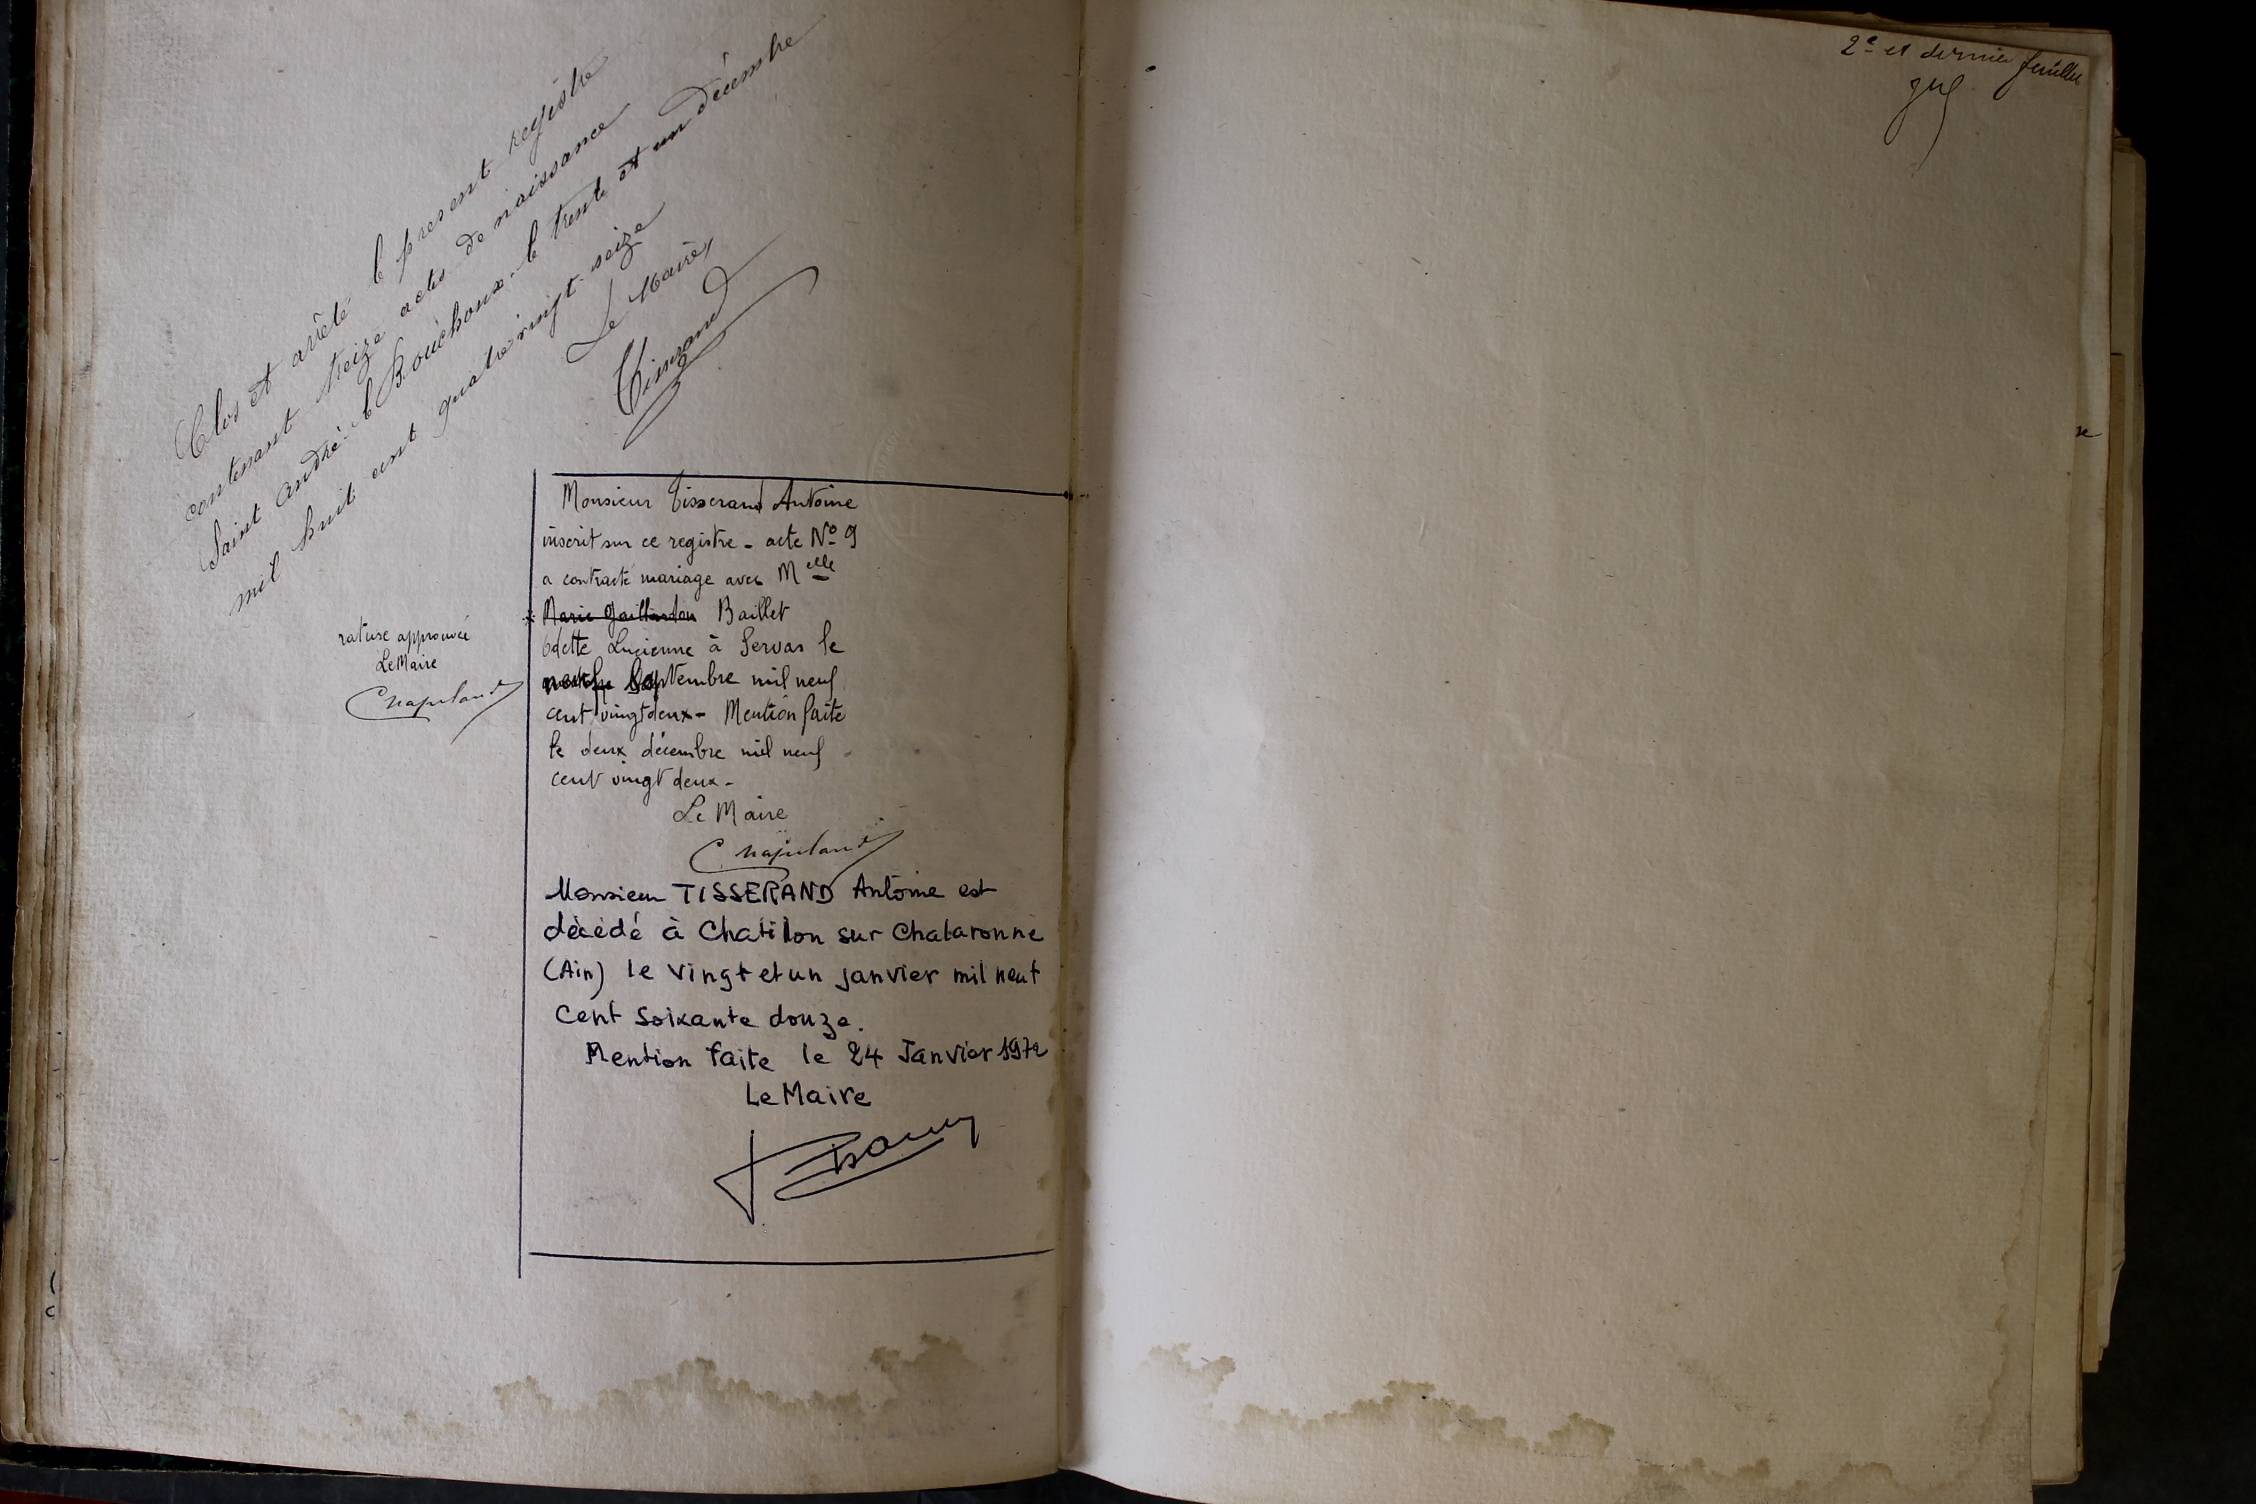 Clos et arrêté le present registre
contenant treize actes de naissance
Saint André-le Bouchoux, le trente et un décembre
mil huit cent quatre vingt-seize
Le Maire,
Tisserand
rature approuvée
Le Maire
Chapeland
Monsieur Tisserand Antoine
inscrit sur ce registre - acte No 9
a contracté mariage avec Melle
* Marie Gaillardon Baillet
Odette Lucienne à Servas le
Septembre mil neuf
cent vingt deux - Mention faite
le deux décembre mil neuf
cent vingt deux -
Le Maire
Chapeland
Monsieur TISSERAND Antoine est
décédé à Chatillon sur Chalaronne
(Ain) le vingt et un janvier mil neuf
cent soixante douze.
Mention faite le 24 Janvier 1972
Le Maire
2e et dernier feuillet